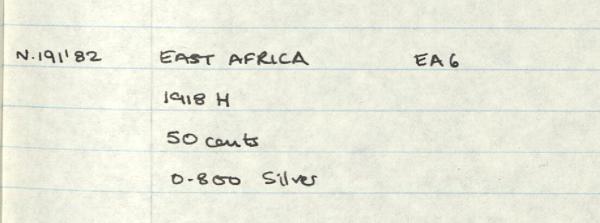 N.191'82 EAST AFRICA EA6
1918 H
50 cents
0-800 Silver